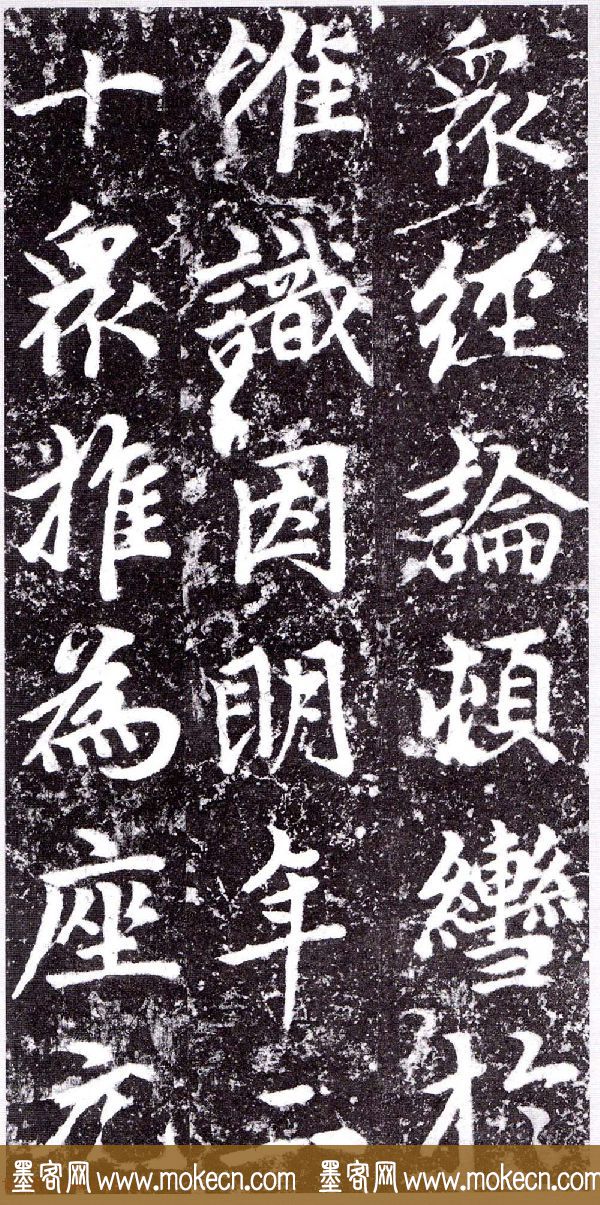 眾經論頓轡於
惟識因明年二
十眾推為座元
墨客网 www.mokecn.com 墨客网 www.mokecn.com